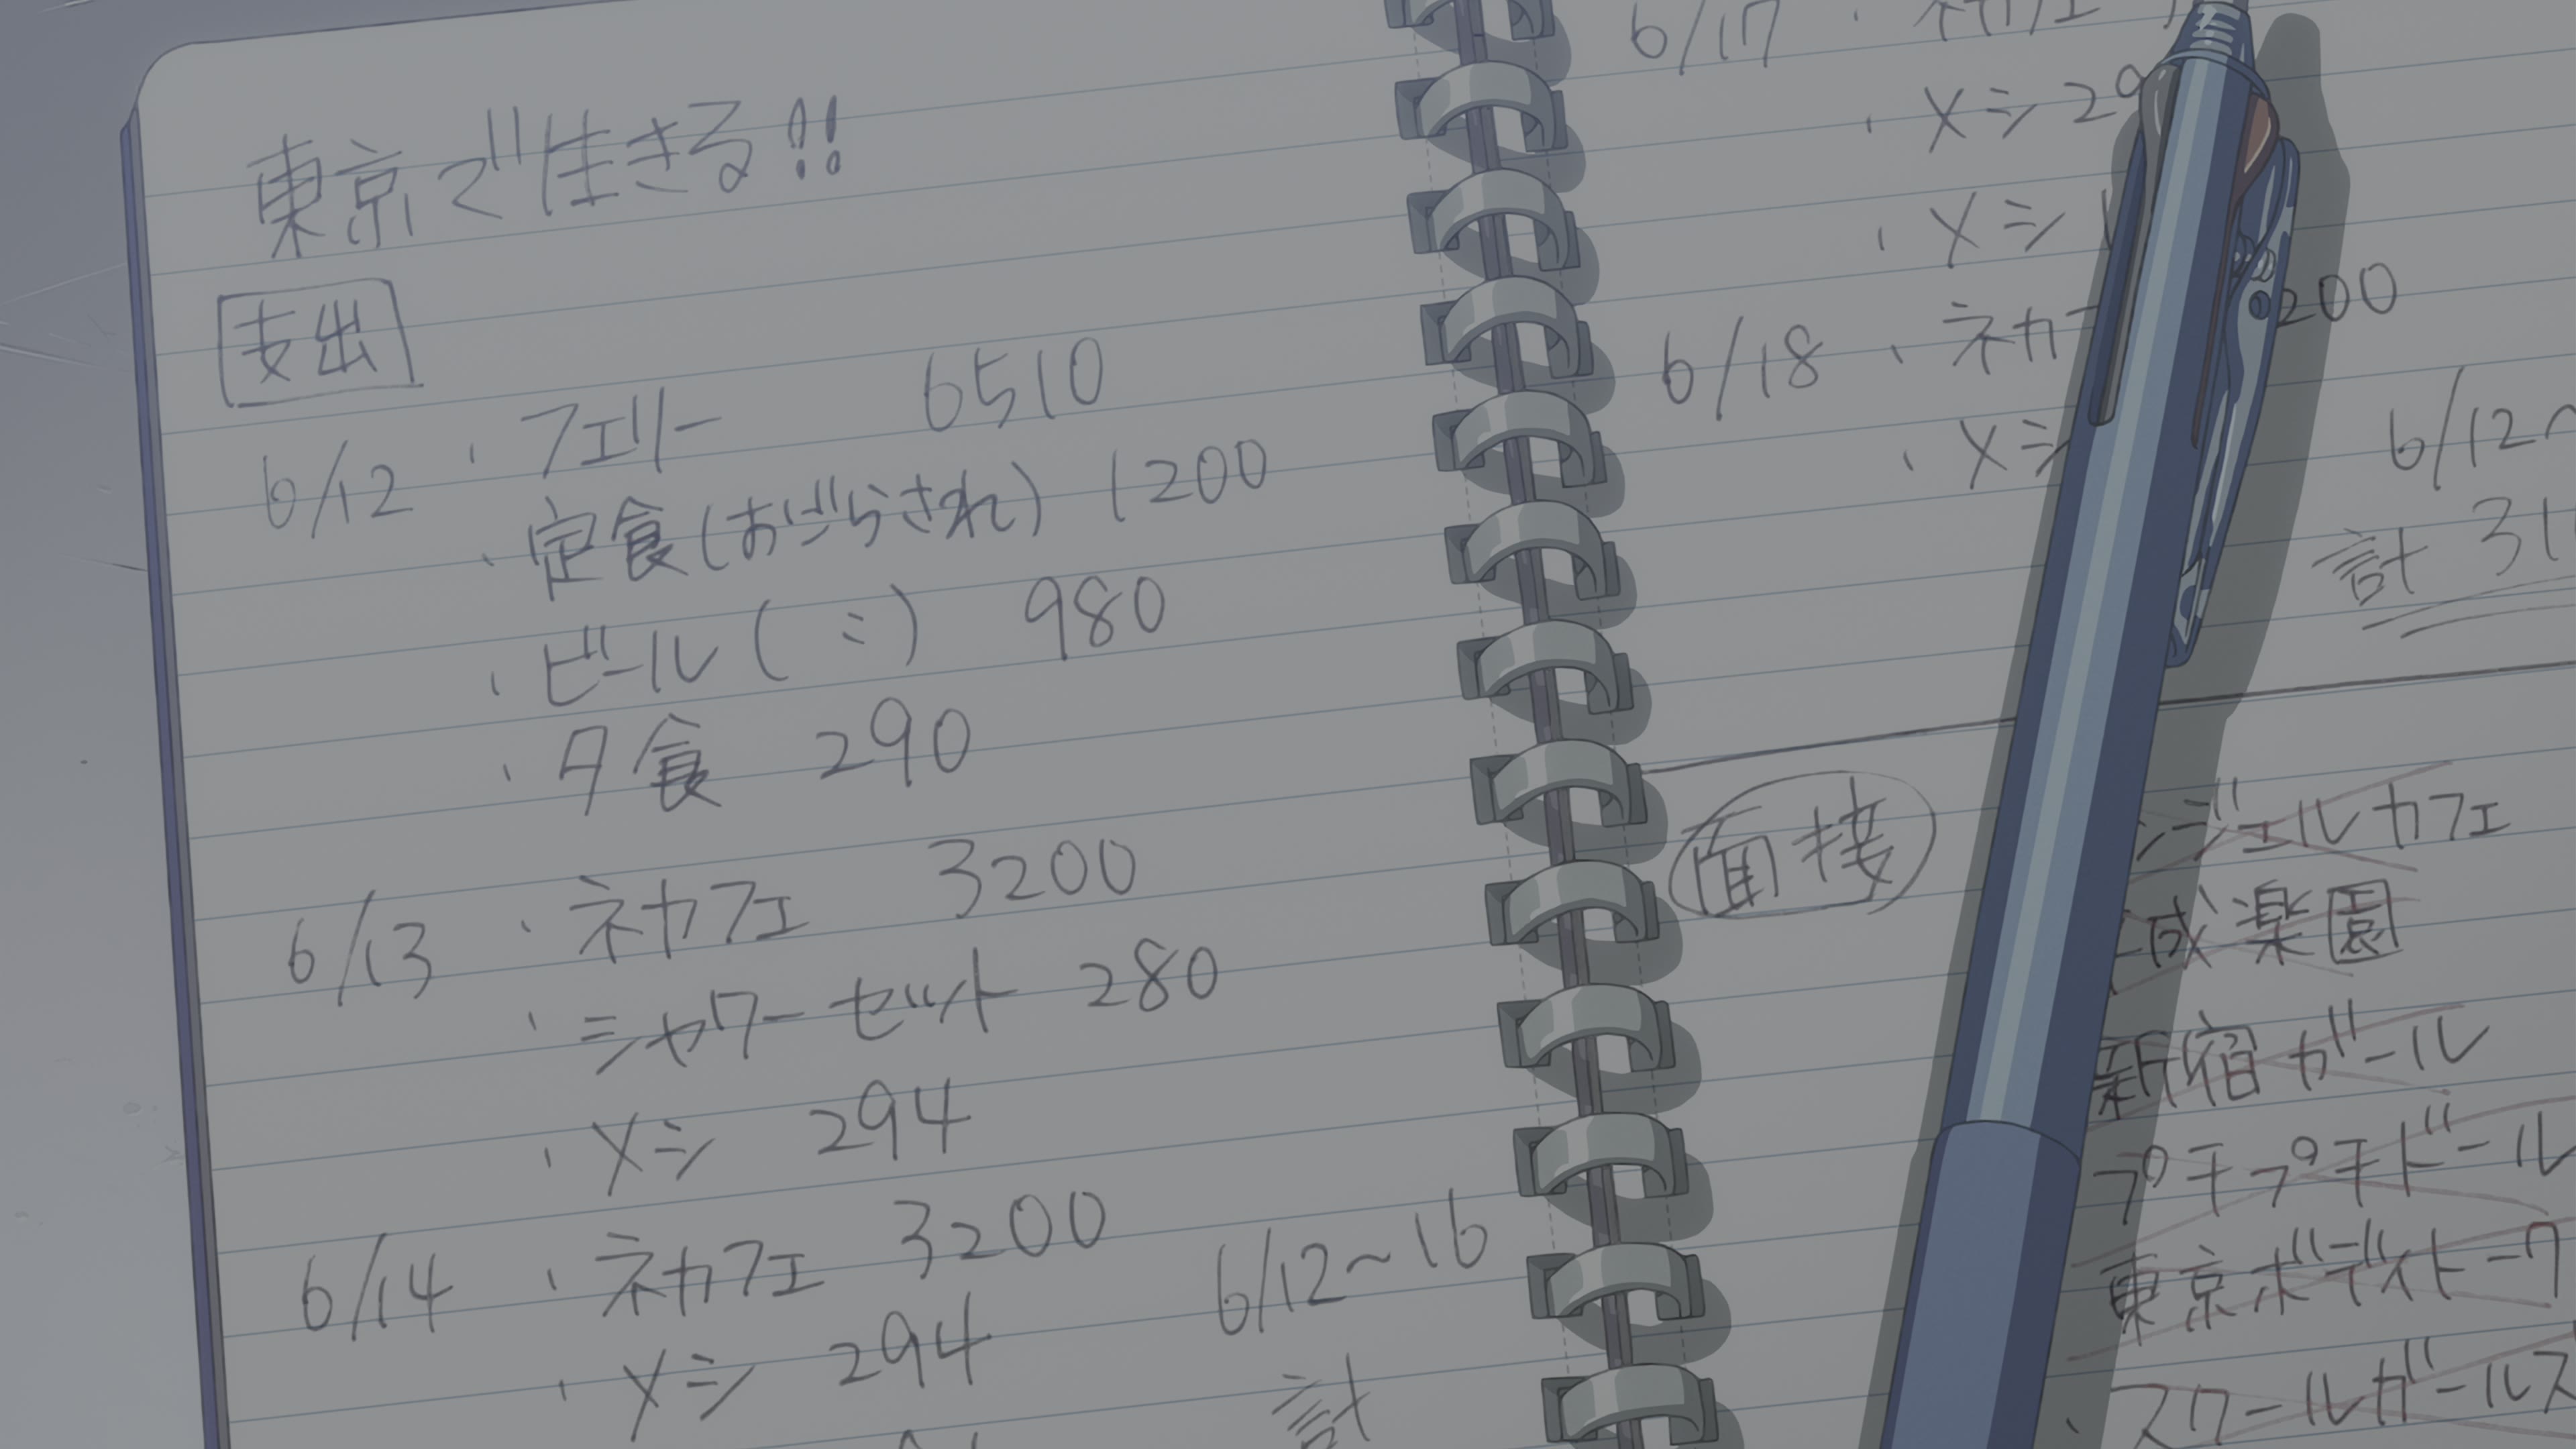 東京で生きる!!
支出
6/12 ・フェリー 6510
・定食(おごらされ) 1200
・ビール(〃) 980
・夕食 290
6/13 ・ネカフェ 3200
・シャワーセット 280
・メシ 294
6/14 ・ネカフェ 3200
・メシ 294
6/12~16
計
6/17 ・ネカフェ
・メシ 29
・メシ
6/18 ・ネカフ 200
・メシ
6/12~
計 31
面接
ンジェルカフェ
成楽園
新宿ガール
プチプチドール
東京ボディトーク
・スクールガールス